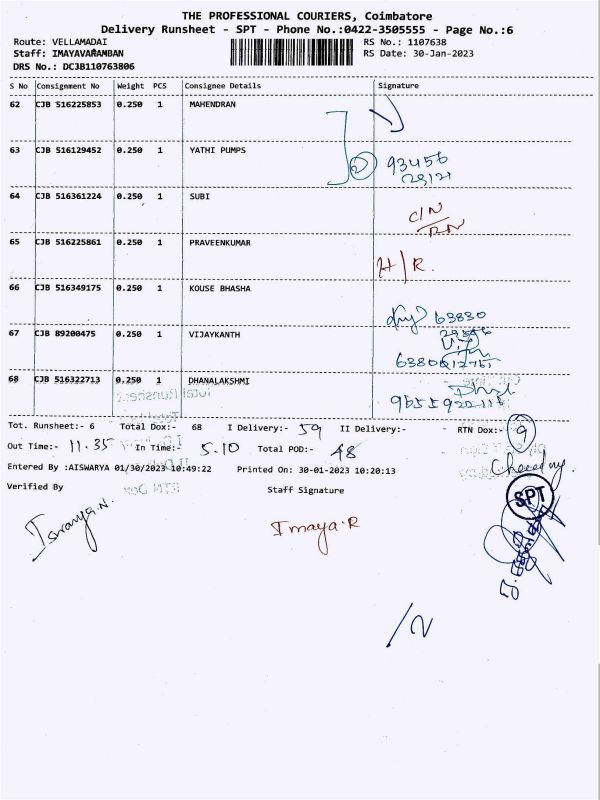 THE PROFESSIONAL COURIERS, Coimbatore
Delivery Runsheet - SPT - Phone No.:0422-3505555 - Page No.:6
Route: VELLAMADAI RS No.: 1107638
Staff: IMAYAVARAMBAN RS Date: 30-Jan-2023
DRS No.: DCJB110763806
S No Consignment No Weight PCS Consignee Details Signature
62 CJB 516225853 0.250 1 MAHENDRAN
63 CJB 516129452 0.250 1 YATHI PUMPS 93456
64 CJB 516361224 0.250 1 SUBI C/N
RN
65 CJB 516225861 0.250 1 PRAVEENKUMAR H/R.
66 CJB 516349175 0.250 1 KOUSE BHASHA
63830
67 CJB 89200475 0.250 1 VIJAYKANTH
68 CJB 516322713 0.250 1 DHANALAKSHMI
Tot. Runsheet:- 6 Total Dox:- 68 I Delivery:- 59 II Delivery:- - RTN Dox:- 9
Out Time:- 11.35 In Time:- 5.10 Total POD:- 48
Entered By :AISWARYA 01/30/2023 10:49:22 Printed On: 30-01-2023 10:20:13
Verified By Staff Signature
SPT
Imaya.R